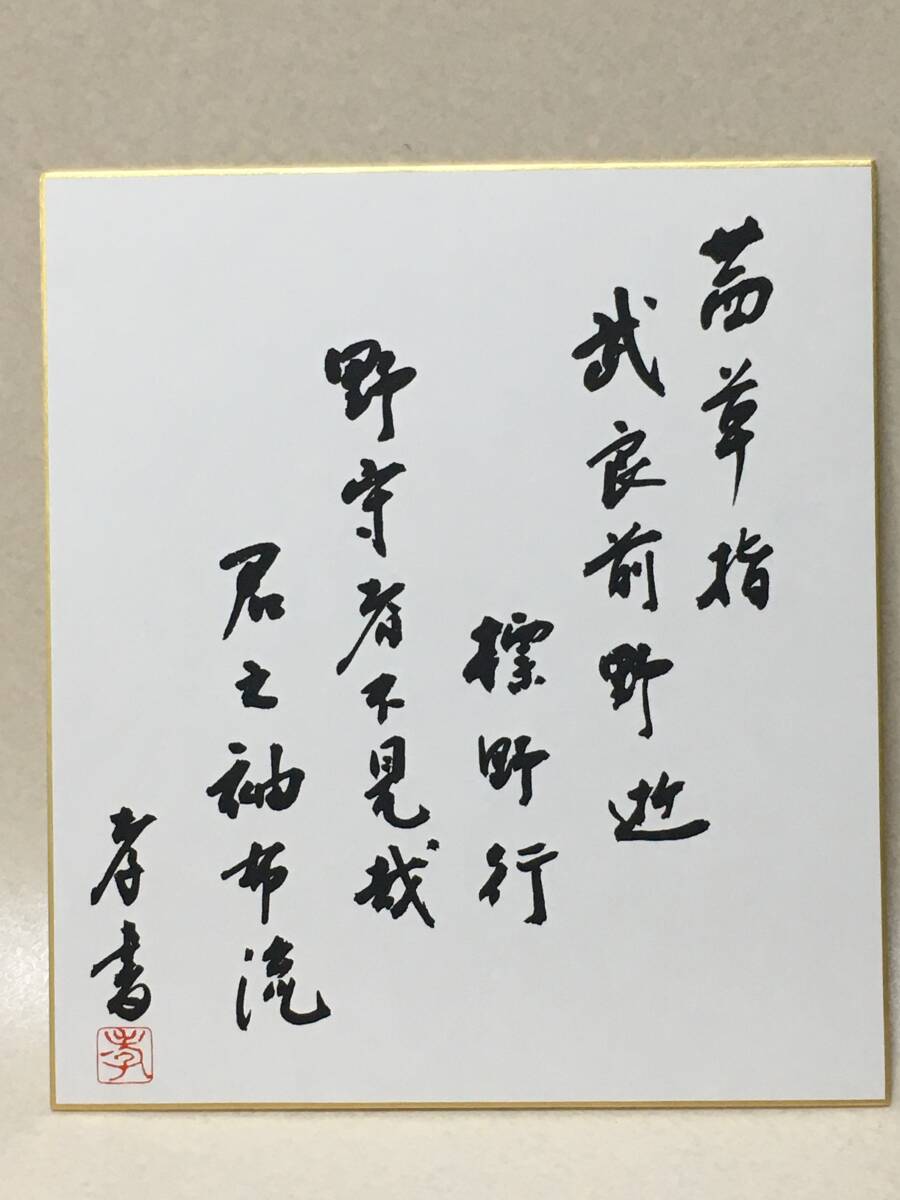 茜草指
武良前野逝
標野行
野守者不見哉
君之袖布流
孝書
孝